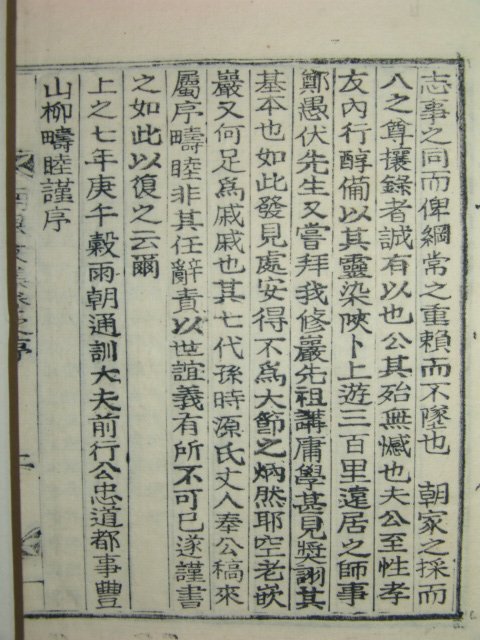 志事之同而俾綱常之重賴而不墜也　朝家之採而
入之尊攘錄者誠有以也公其殆無憾也夫公至性孝
友內行醇備以其靈染陜卜上遊三百里遠居之師事
鄭愚伏先生又嘗拜我修巖先祖講庸學甚見奬詡其
基本也如此發見處安得不爲大節之炳然耶空老嵌
巖又何足爲戚戚也其七代孫時源氏丈人奉公稿來
屬序疇睦非其任辭責以世誼義有所不可已遂謹書
之如此以復之云爾
上之七年庚午穀雨朝通訓大夫前行公忠道都事豐
山柳疇睦謹序